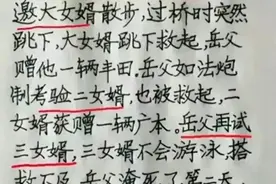 邀大女婿散步,过桥时突然
跳下,大女婿跳下救起,岳父
赠他一辆丰田.岳父如法炮
制考验二女婿,也被救起,二
女婿获赠一辆广本.岳父再试
三女婿,三女婿不会游泳,搭
救不及,岳父淹死了.第二天,